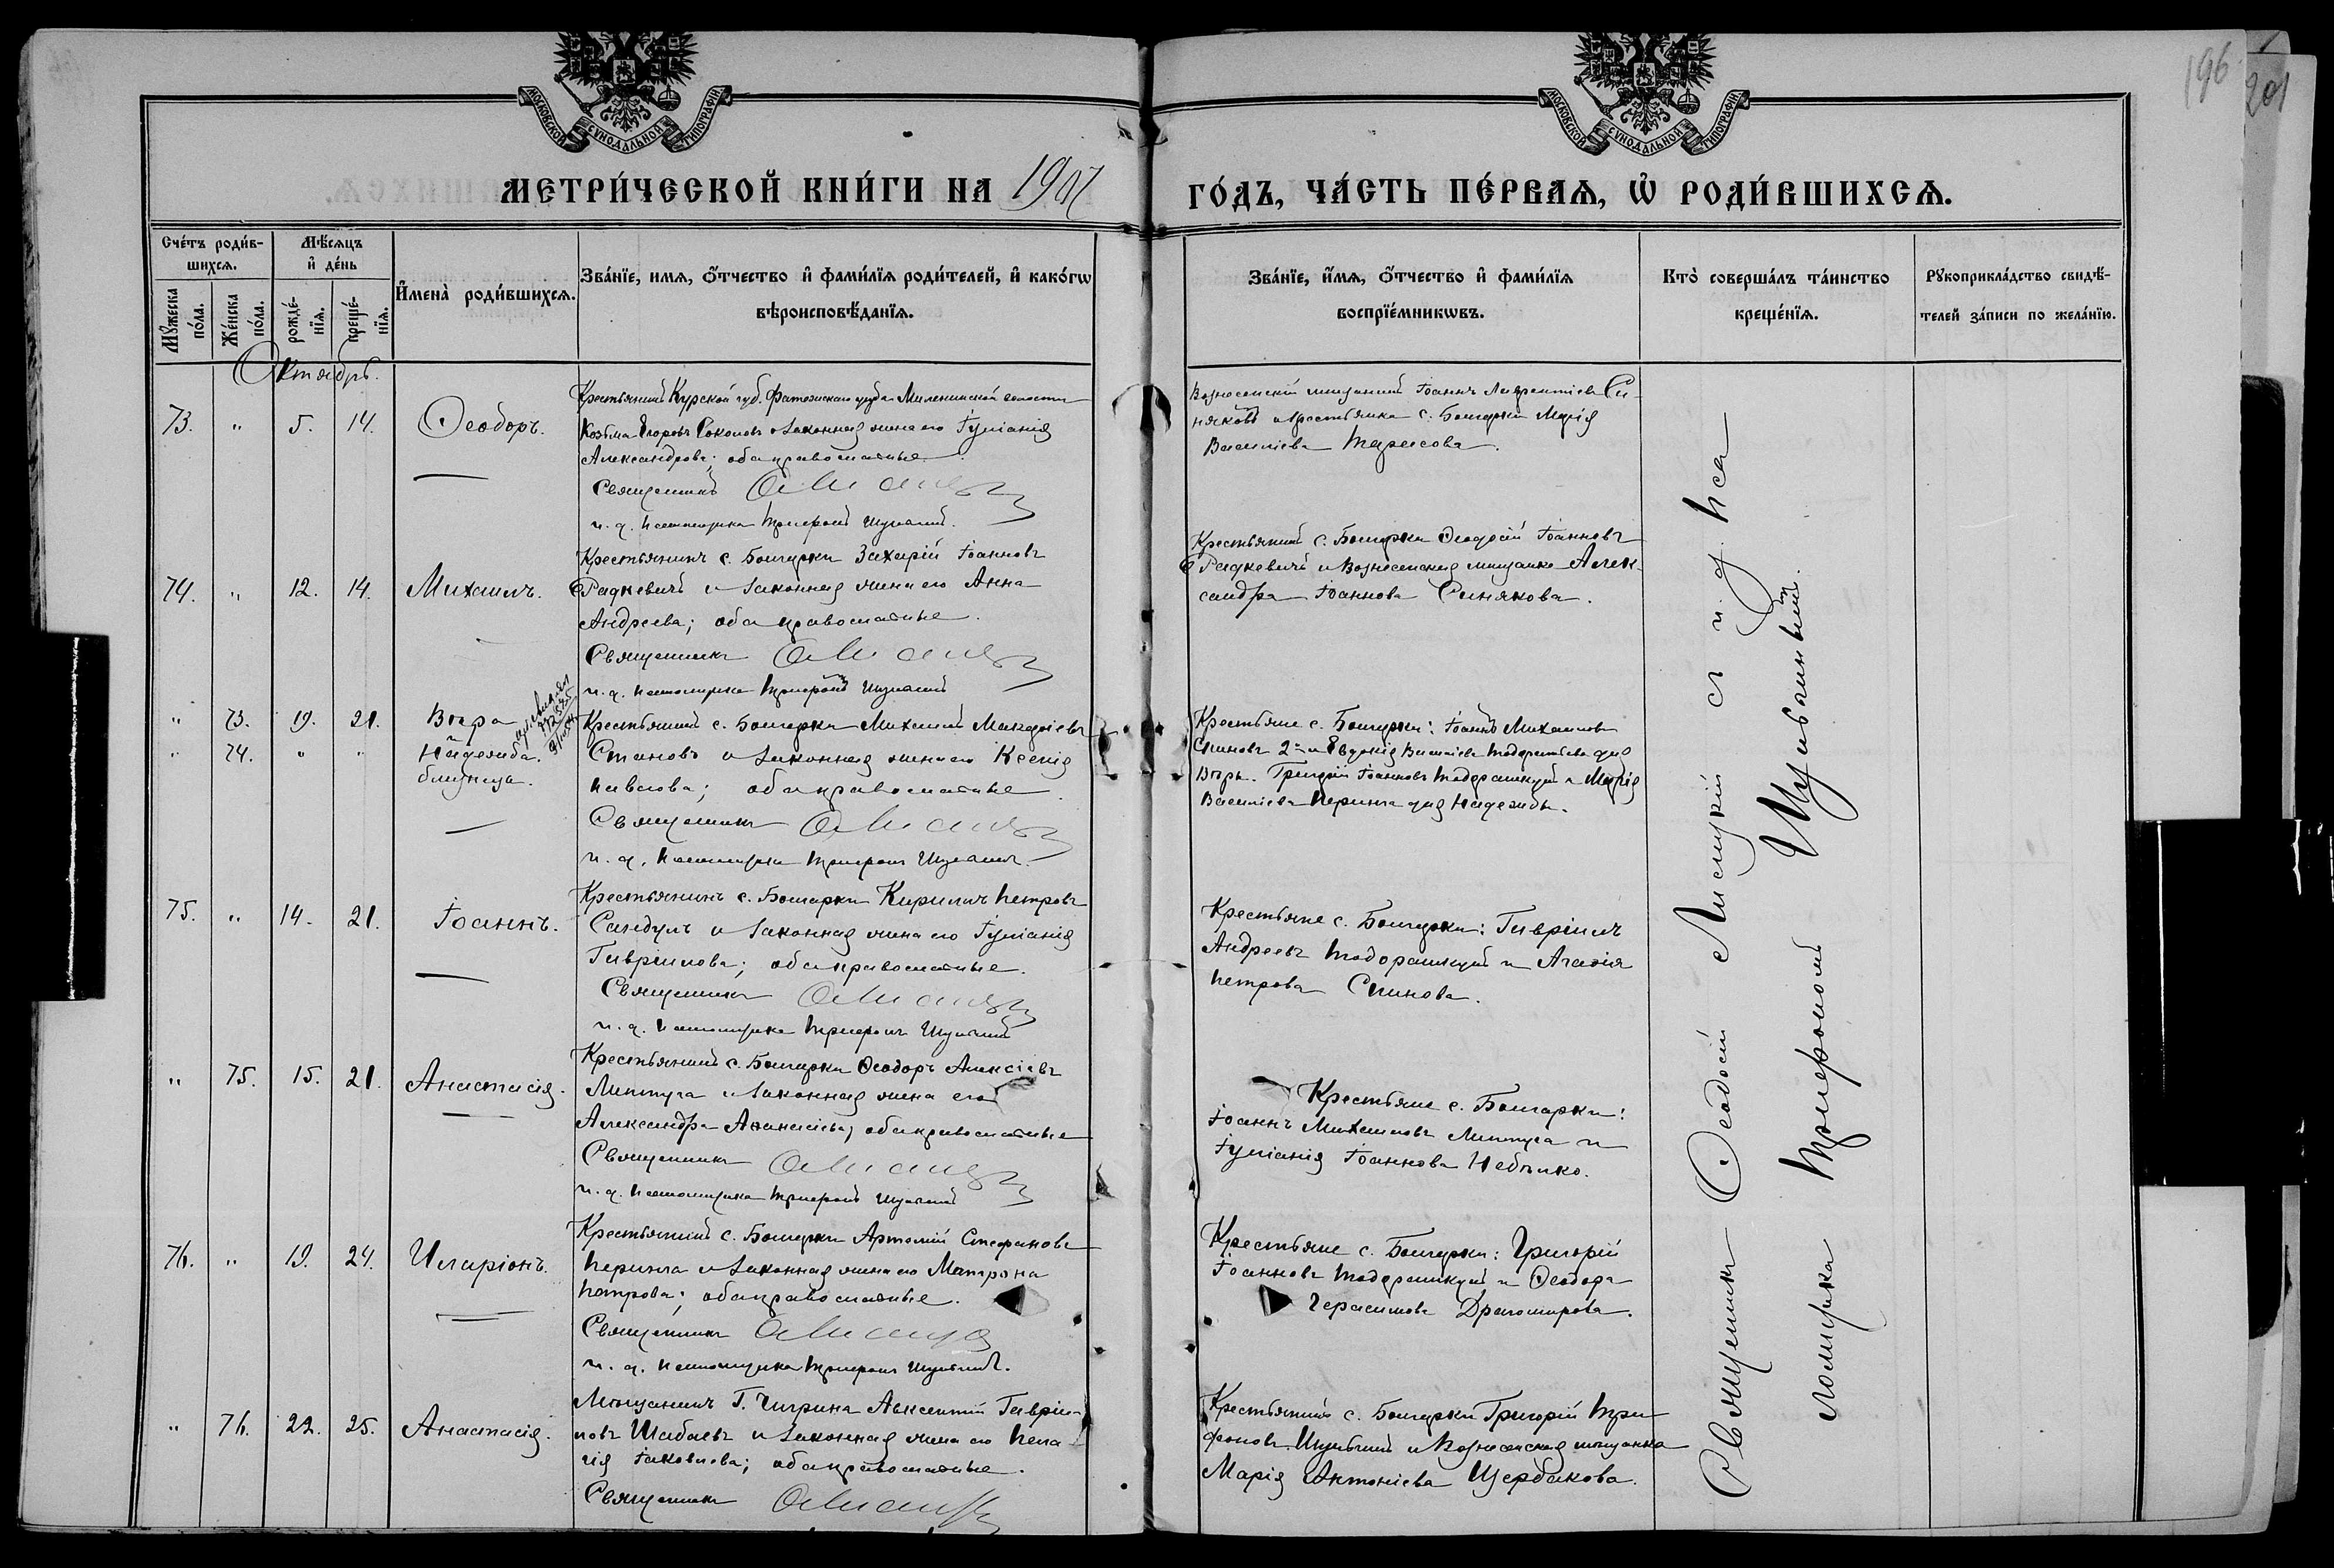 196
201
МОСКОВСКОЙ СѴНОДАЛЬНОЙ ТИПОГРАФІИ
МОСКОВСКОЙ СѴНОДАЛЬНОЙ ТИПОГРАФІИ
МЕТРИ́ЧЕСКОЙ КНИ́ГИ НА 1907 ГО́ДЪ, ЧА́СТЬ ПЕ́РВАѦ, Ѡ҆ РОДИ́ВШИХСѦ.
Сче́тъ роди́в-
шихсѧ.
Мꙋ́жеска по́ла.
Же́нска по́ла.
Мѣ́сяцъ
и҆ де́нь
рожде́-
нїѧ.
креще́-
нїѧ.
И҆мена̀ роди́вшихсѧ.
Зва́нїе, имѧ, ѻ҆́тчество и҆ фами́лїѧ роди́телей, и҆ како́гѡ
вѣроисповѣ́данїѧ.
Зва́нїе, и҆́мѧ, ѻ҆́тчество и҆ фами́лїѧ
воспрїе́мникѡвъ.
Кто̀ соверша́лъ та́инство
креще́нїѧ.
Рꙋкоприкла́дство свидѣ́-
телей за́писи по жела́нїю.
Октябрь.
73. " 5. 14. Ѳеодоръ.
Крестьянинъ Курской губ. Фатежскаго уѣзда Миленинской волости
Козьма Егоровъ Соколовъ и законная жена его Іуліанія
Александрова; оба православные.
Священникъ
и. д. псаломщика Трифонъ
Вознесенскій мѣщанинъ Іоаннъ Лаврентіевъ Си-
няковъ и крестьянка с. Болгарки Марія
Василіева Тарасова.
74. " 12. 14. Михаилъ.
Крестьянинъ с. Болгарки Захарій Іоанновъ
Радкевичъ и законная жена его Анна
Андреева; оба православные.
Священникъ
и. д. псаломщика Трифонъ
Крестьянинъ с. Болгарки Ѳеодосій Іоанновъ
Радкевичъ и Вознесенская мѣщанка Алек-
сандра Іоаннова Синякова.
" 73. 19. 21. Вѣра
" 74. " " Надежда.
близнецы.
Крестьянинъ с. Болгарки Михаилъ Макаріевъ
Становъ и законная жена его Ксенія
Павлова; оба православные
Священникъ
и. д. псаломщика Трифонъ
Крестьяне с. Болгарки: Іоаннъ Михаиловъ
Спиновъ 2й и Евдокія Василіева для
Вѣры. Григорій Іоанновъ Тодорашкулъ и Марія
Василіева Перинга для Надежды.
75. " 14. 21. Іоаннъ.
Крестьянинъ с. Болгарки Кириллъ Петровъ
Сандулъ и законная жена его Іуліанія
Гавріилова; оба православные.
Священникъ
и. д. псаломщика Трифонъ
Крестьяне с. Болгарки: Гавріилъ
Андреевъ Тодорашкулъ и Агаѳія
Петрова Спинова.
" 75. 15. 21. Анастасія.
Крестьянинъ с. Болгарки Ѳеодоръ Алексіевъ
Липтуга и законная жена его
Александра Аѳанасіева; оба православные
Священникъ
и. д. псаломщика Трифонъ
Крестьяне с. Болгарки:
Іоаннъ Михаиловъ Липтуга и
Іуліанія Іоаннова
76. " 19. 24. Иларіонъ.
Крестьянинъ с. Болгарки Артемій Стефановъ
Перинга и законная жена его Матрона
Петрова; оба православные.
Священникъ
и. д. псаломщика Трифонъ
Крестьяне с. Болгарки: Григорій
Іоанновъ Тодорашкулъ и Ѳеодора
Герасимова Драгомирова.
" 76. 22. 25. Анастасія.
Мѣщанинъ Г. Авксентій Гавріи-
ловъ Шабаевъ и законная жена его Пела-
гія Іаковлева; оба православные.
Священникъ
Крестьянинъ с. Болгарки Григорій Три-
фоновъ и Вознесенская мѣщанка
Марія Антоніева Щербакова.
Священникъ Ѳеодосій Лисицкій съ и. д. пса-
ломщика Трифономъ